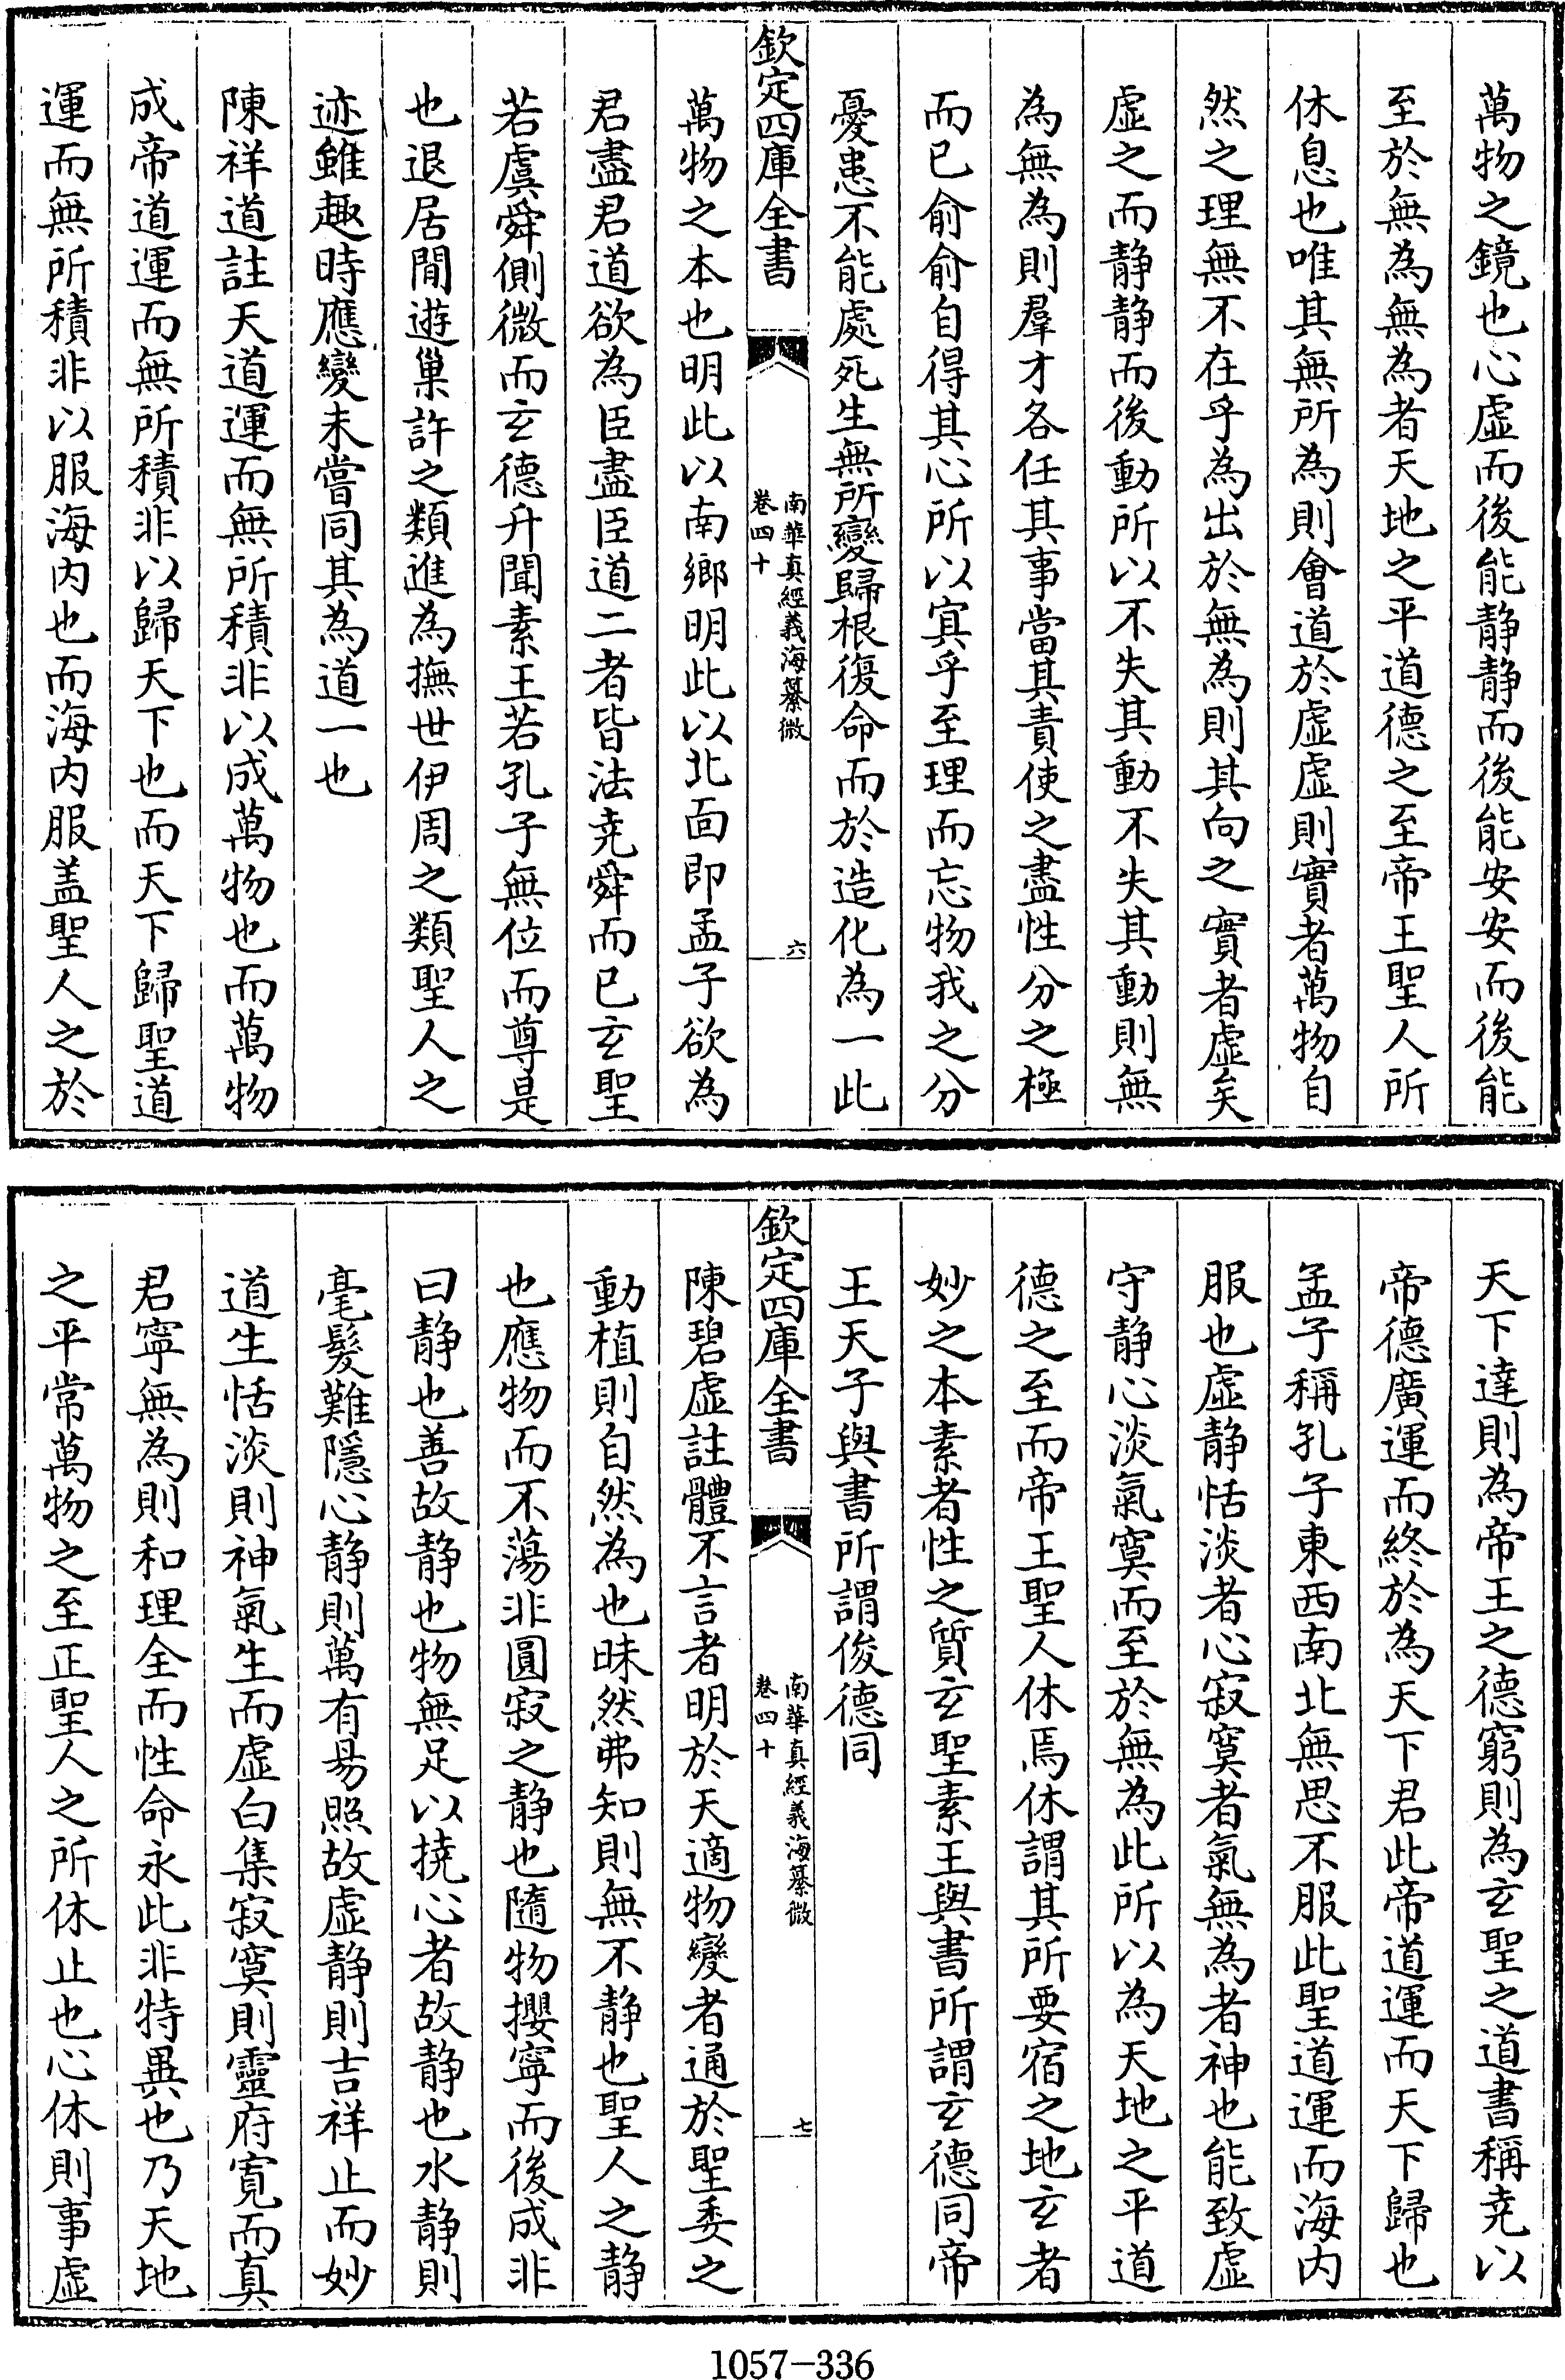 萬物之鏡也心虛而後能静静而後能安安而後能
至於無為無為者天地之平道德之至帝王聖人所
休息也唯其無所為則會道於虛虛則實者萬物自
然之理無不在乎為出於無為則其向之實者虛矣
虛之而静静而後動所以不失其動不失其動則無
為無為則羣才各任其事當其責使之盡性分之極
而已俞俞自得其心所以寘乎至理而忘物我之分
憂患不能處死生無所變歸根復命而於造化為一此
欽定四庫全書
南華真經義海纂微
卷四十
六
萬物之本也明此以南鄉明此以北面即孟子欲為
君盡君道欲為臣盡臣道二者皆法堯舜而已玄聖
若虞舜側微而玄德升聞素王若孔子無位而尊是
也退居閒遊巢許之類進為撫世伊周之類聖人之
迹雖趣時應變未嘗同其為道一也
陳祥道註天道運而無所積非以成萬物也而萬物
成帝道運而無所積非以歸天下也而天下歸聖道
運而無所積非以服海内也而海内服盖聖人之於
天下達則為帝王之德窮則為玄聖之道書稱堯以
帝德廣運而終於為天下君此帝道運而天下歸也
孟子稱孔子東西南北無思不服此聖道運而海内
服也虛静恬淡者心寂寞者氣無為者神也能致虛
守静心淡氣寞而至於無為此所以為天地之平道
德之至而帝王聖人休焉休謂其所要宿之地玄者
妙之本素者性之質玄聖素王與書所謂玄德同帝
王天子與書所謂俊德同
欽定四庫全書
南華真經義海纂微
卷四十
七
陳碧虛註體不言者明於天適物變者通於聖委之
動植則自然為也昧然弗知則無不静也聖人之静
也應物而不蕩非圓寂之静也隨物攖寧而後成非
曰静也善故静也物無足以撓心者故静也水静則
毫髮難隱心静則萬有易照故虛静則吉祥止而妙
道生恬淡則神氣生而虛白集寂寞則靈府寛而真
君寧無為則和理全而性命永此非特異也乃天地
之平常萬物之至正聖人之所休止也心休則事虛
1057-336